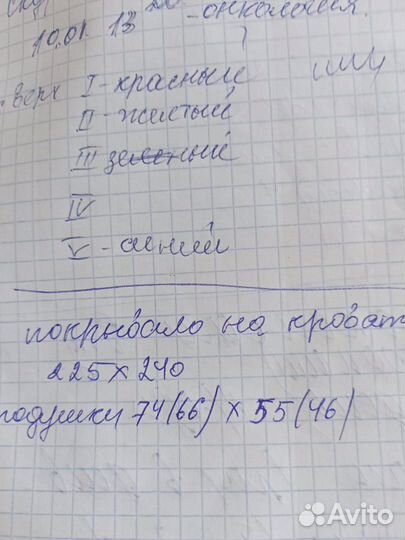 10.01. 13 - онкология.
верх I - красный
II - желтый
III зеленый
IV
V - синий
покрывало на кроват
225 х 240
подушки 74(66) х 55(46)
Avito